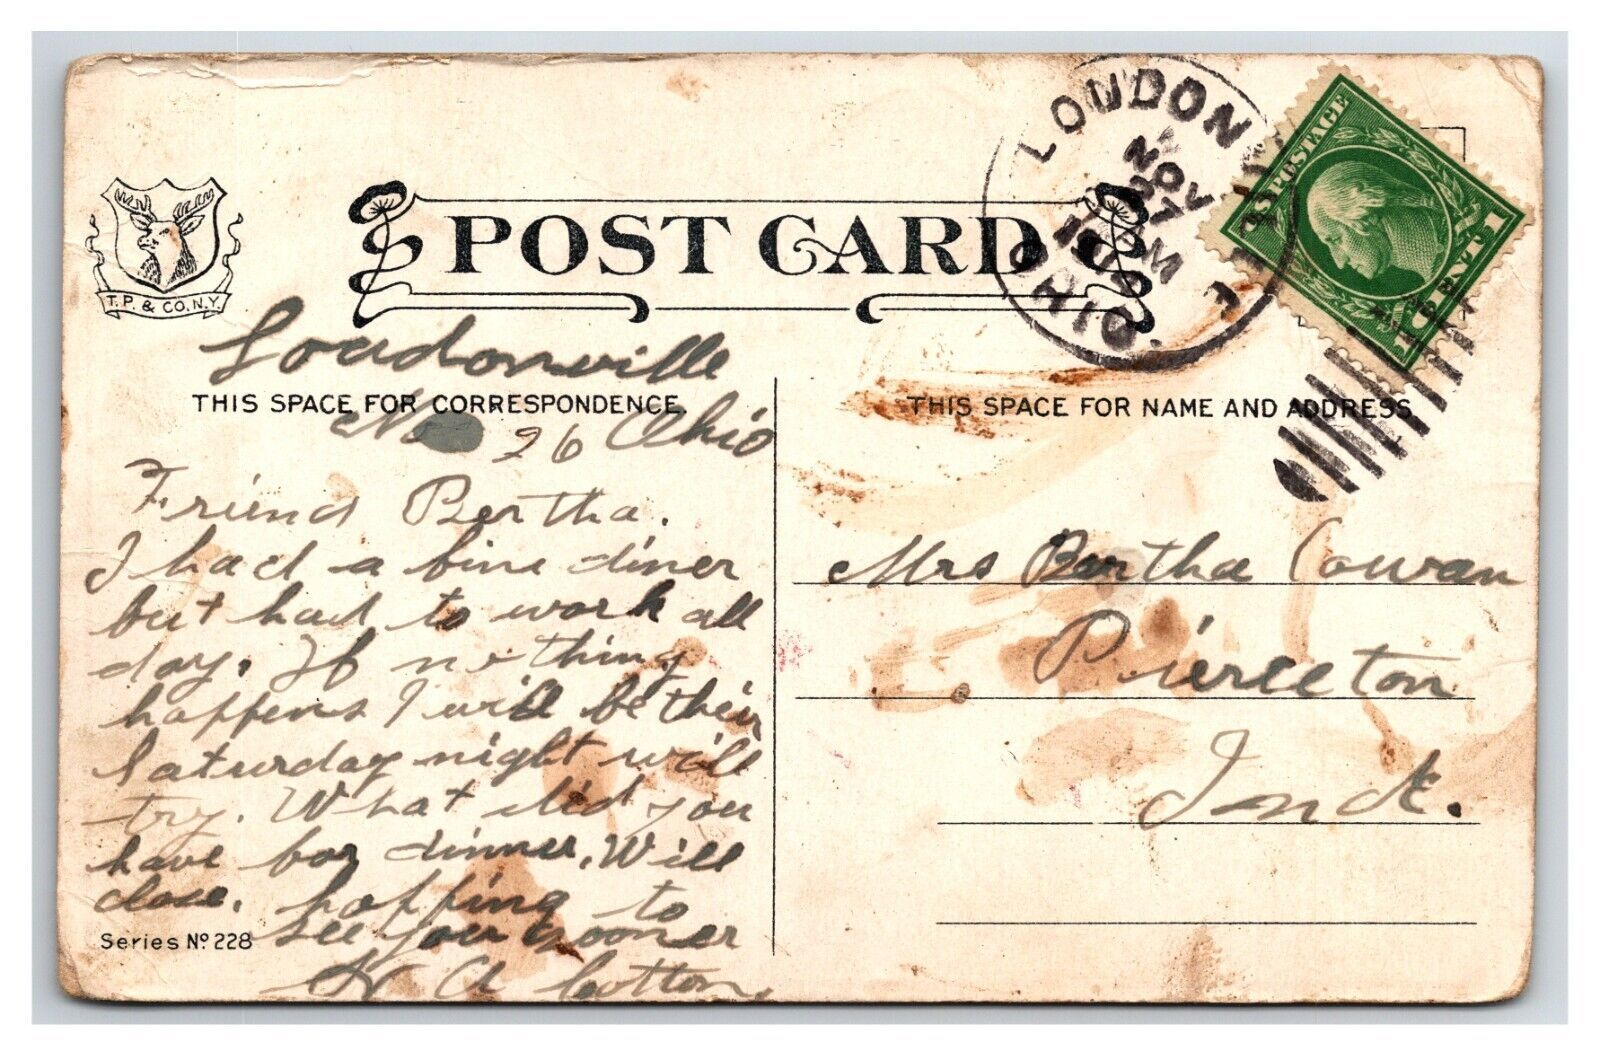 T.P. & CO. N.Y.
POST CARD
LOUDONVILLE
OHIO
NOV
27
PM
U.S. POSTAGE
1 CENT 1
Loudonville
THIS SPACE FOR CORRESPONDENCE.
No 26 Ohio
Friend Bertha.
I had a fine diner
but had to work all
day. If nothing
happens I will be their
Saturday night will
try. What did you
have for dinner. Will
close. hopping to
see your sooner
Cotton,
Series Nº 228
THIS SPACE FOR NAME AND ADDRESS
Mrs Bertha Cowan
Pierceton
Ind.